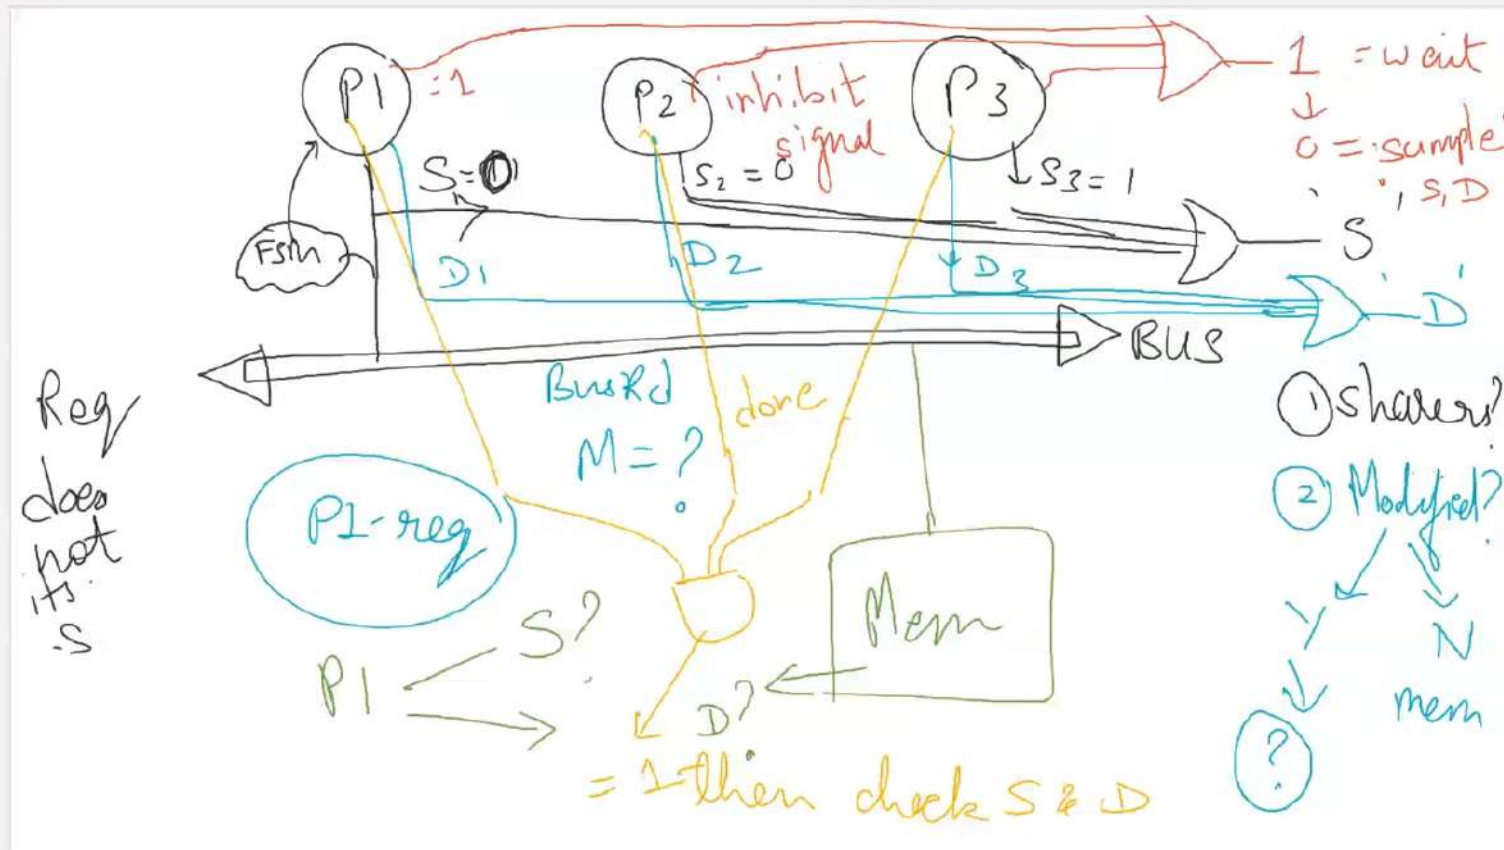 P1 = 1
P2
inhibit signal
P3
1 = wait
↓
0 = sample
S, D
S = 0
S2 = 0
S3 = 1
S
FSM
D1
D2
D3
D
BUS
Req
does
not
its
S
BusRd
M = ?
done
P1-req
① Sharers?
② Modified?
Y
N
?
mem
Mem
P1
S?
D?
= 1 then check S & D